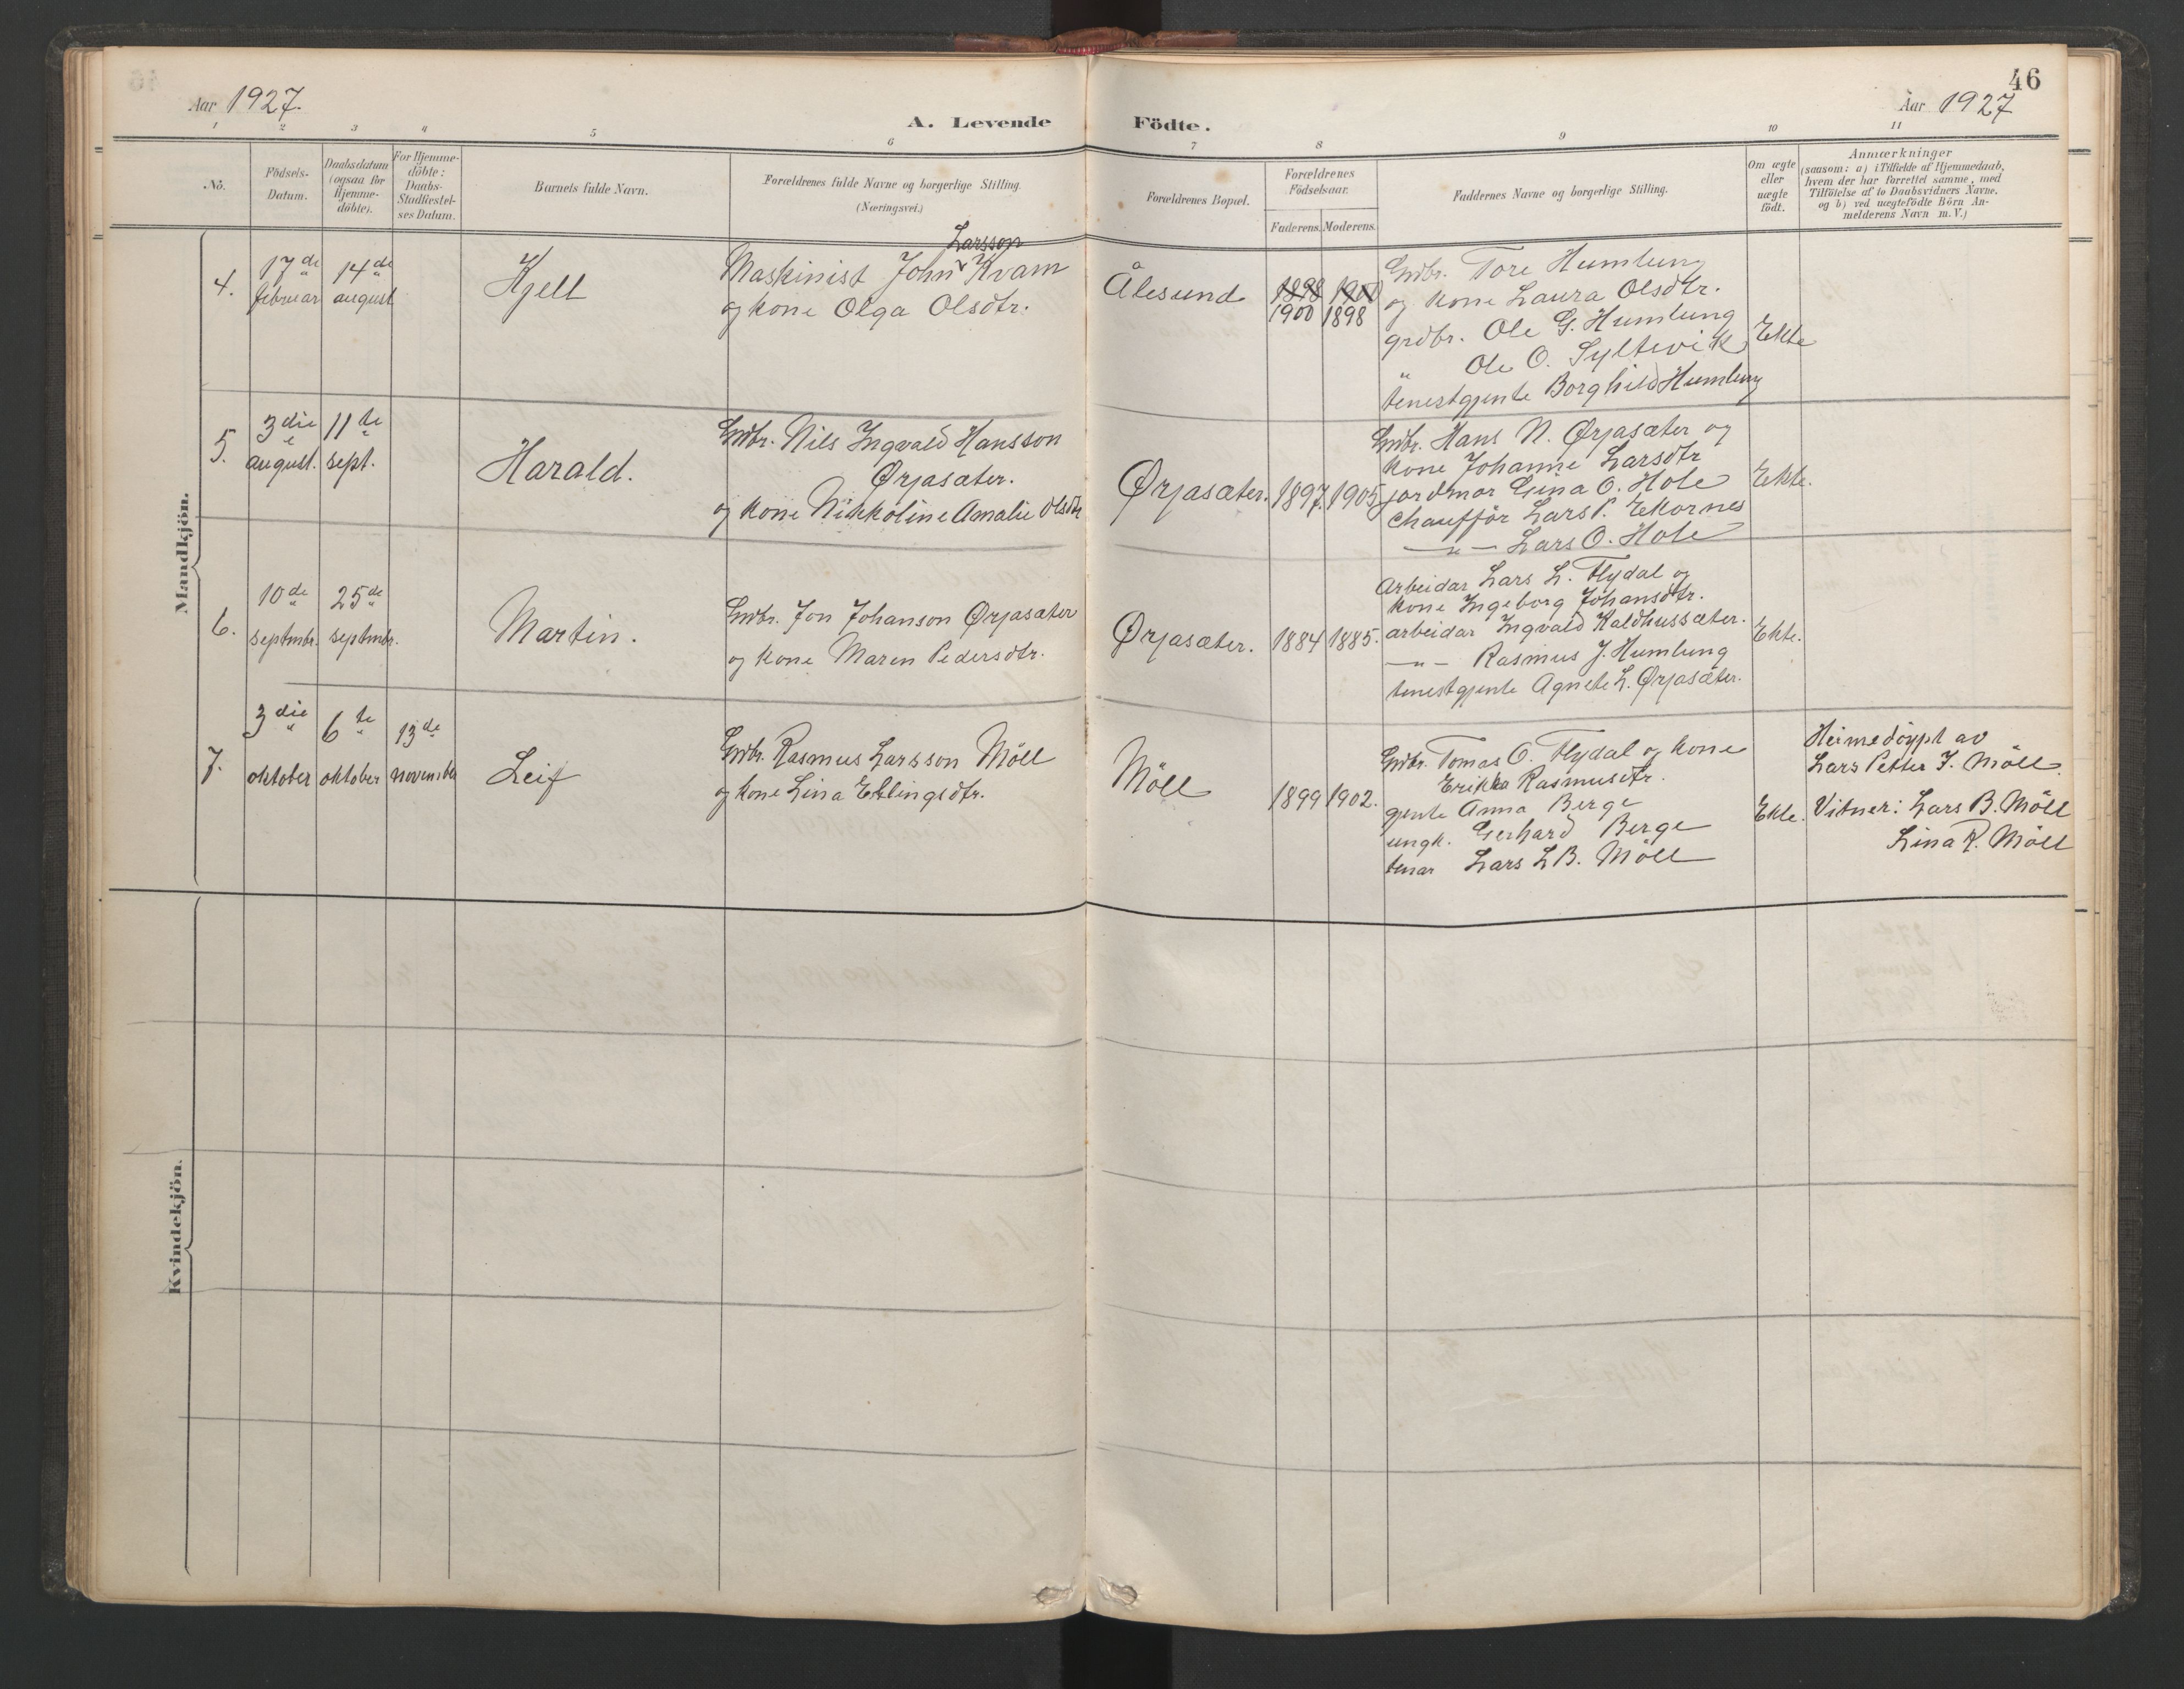 46
Aar 1927.
Aar 1927
A. Levende Födte.
1 2 3 4 5 6 7 8 9 10 11
No.
Födsels-
Datum.
Daabsdatum
(ogsaa for
Hjemme-
döbte).
For Hjemme-
döbte:
Daabs-
Stadfæstel-
ses Datum.
Barnets fulde Navn.
Forældrenes fulde Navne og borgerlige Stilling.
(Næringsvei.)
Forældrenes Bopæl.
Forældrenes
Födselsaar.
Faderens. Moderens.
Faddernes Navne og borgerlige Stilling.
Om ægte
eller
uægte
födt.
Anmærkninger
(saasom: a) i Tilfælde af Hjemmedaab,
hvem der har forrettet samme, med
Tilföielse af to Daabsvidners Navne.
og b) ved uægtefödte Börn An-
melderens Navn m. V.)
Mandkjön.
4.
17de
februar
14de
august
Kjell
Larsson
Maskinist John Kvam
og kone Olga Olsdtr.
Ålesund
1898 1900
1900 1898
Grdbr. Tore Humlung
og kone Laura Olsdtr.
grdbr. Ole G. Humlung
" Ole O. Syltevik
tenestgjente Borghild Humlung
Ekte
5.
3die
august.
11te
sept.
Harald.
Grdbr. Nils Ingvald Hansson
Ørjasæter.
og kone Nikkoline Amalie Olsdtr
Ørjasæter.
1897. 1905
Grdbr. Hans N. Ørjasæter og
kone Johanne Larsdtr
jordmor Gina O. Hole
Chaufför Lars P. Ekornes
—"— Lars O. Hole
Ekte.
6.
10de
septmbr.
25de
septmbr.
Martin.
Grdbr. Jon Johanson Ørjasæter
og kone Maren Pedersdtr.
Ørjasæter.
1884 1885.
Arbeidar Lars L. Flydal og
kone Ingeborg Johansdtr.
arbeidar Ingvald Kaldhussæter.
—"— Rasmus J. Humlung
tenestgjente Agnete L. Ørjasæter.
Ekte.
7.
3die
oktober
6te
oktober
13de
november
Leif
Grdbr. Rasmus Larsson Möll
og kone Lina Ellingsdtr.
Möll
1899 1902.
Grdbr. Tomas O. Flydal og kone
Erikka Rasmusdtr.
gjente Anna Berge
ungk. Gerhard Berge
tenar Lars L B. Möll
Ekte.
Heimedöypt av
Lars Petter I. Möll.
Vitner: Lars B. Möll
Lina R. Möll
Kvindekjön.